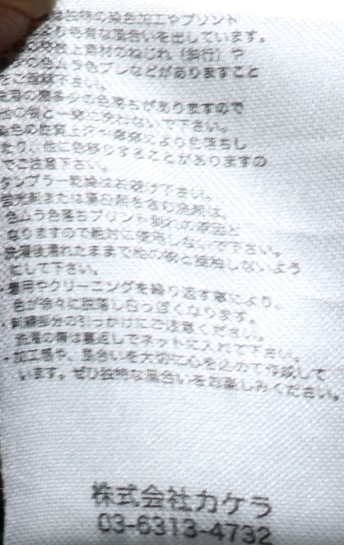 は独特の染色加工やプリント
より特有な風合いを出しています。
特性上素材のねじれ（斜行）や
の色ムラ色ブレなどがありますこと
ご理解下さい。
洗濯の際多少の色落ちがありますので
他の物と一緒に洗わないで下さい。
染色の性質上汗や摩擦により色落ちし
たり、他に色移りすることがありますの
でご注意下さい。
タンブラー乾燥はお避け下さい。
蛍光剤または漂白剤を含む洗剤は、
色ムラ色落ちプリント割れの原因と
なりますので絶対に使用しないで下さい。
洗濯後濡れたままで他の物と接触しないよう
にして下さい。
・着用やクリーニングを繰り返す事により、
色が徐々に脱落し白っぽくなります。
・刺繍部分の引っかけにご注意ください。
洗濯の際は裏返してネットに入れて下さい。
・加工感や、風合いを大切に心を込めて作成して
います。ぜひ独特な風合いをお楽しみください。
株式会社カケラ
03-6313-4732